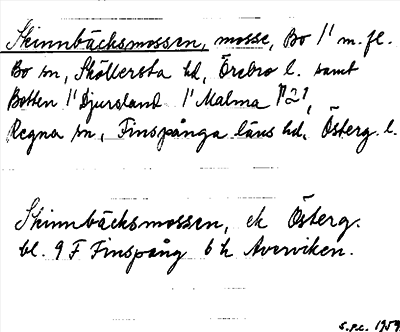 Skinnbäcksmossen, mosse, Bo 1¹ m.fl.
Bo sn, Sköllersta hd, Örebro l. samt
Botten 1¹ Djursland 1¹ Malma 1²2¹,
Regna sn, Finspånga läns hd, Österg. l.
Skinnbäcksmossen, ek Österg.
bl. 9 F Finspång 6 h Averviken.
s.p.c. 1959